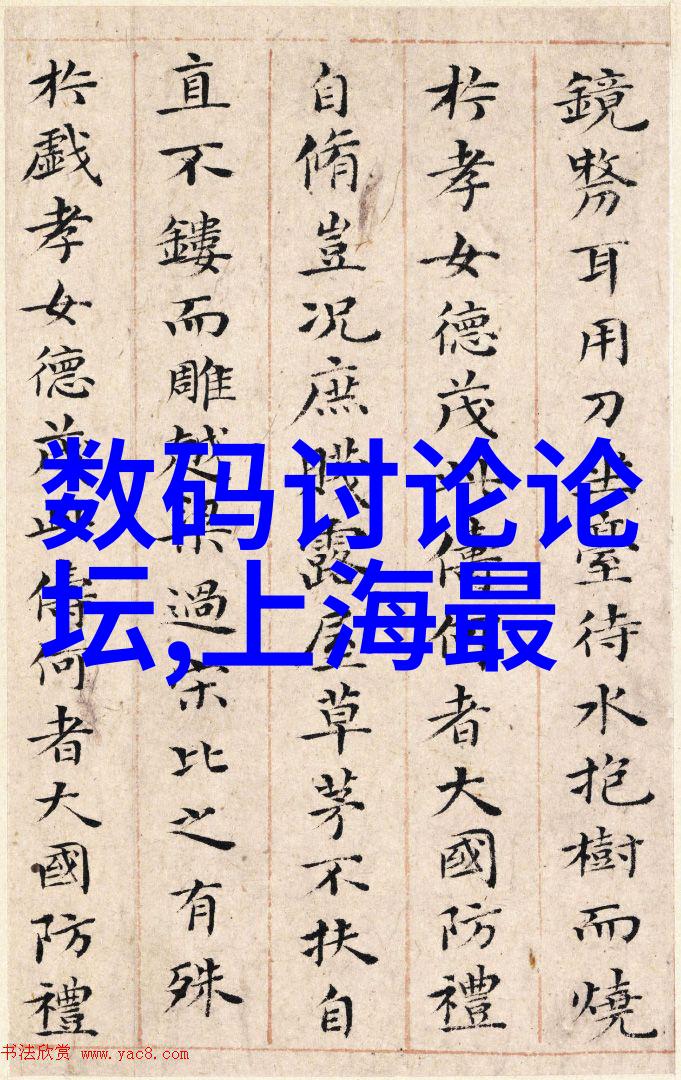 鏡剺耳用刀坐臺待水抱樹而燒
於孝女德茂此儔何者大國防禮
自脩豈况庶賤露屋草茅不扶自
直不鏤而雕越梁過宋比之有殊
於戯孝女德茂此儔何者大國防禮
数码讨论论
坛,上海最
书法欣赏 www.yac8.com